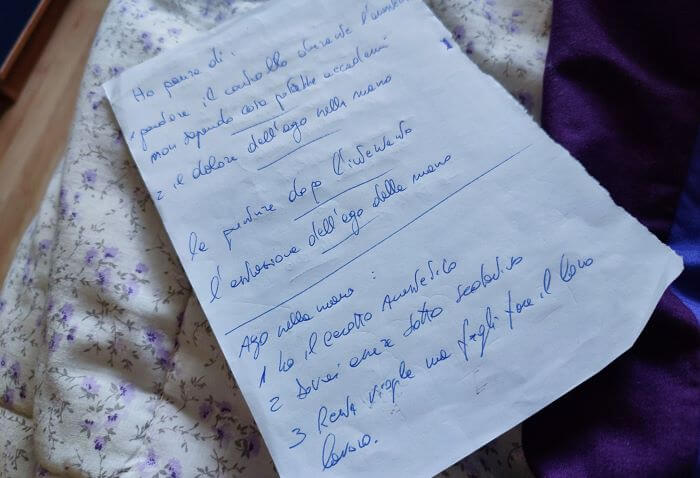 Ho paura di:
1 perdere il controllo durante l'
non sapendo cosa potrebbe accadermi
2 il dolore dell'ago nella mano
le punture dopo l'intervento
l'estrazione dell'ago dalla mano
Ago nella mano:
1 ho il cerotto Anestetico
2 Dovrei essere sotto sedativo
3 Resta vigile ma fagli fare il loro
lavoro.